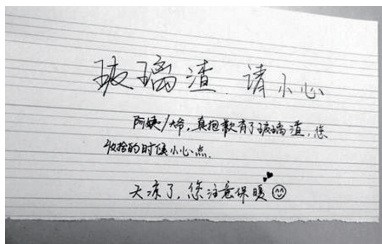 玻璃渣.请小心
阿姨/大爷,真抱歉有了玻璃渣,您
收拾的时候小心点.
天凉了,您注意保暖